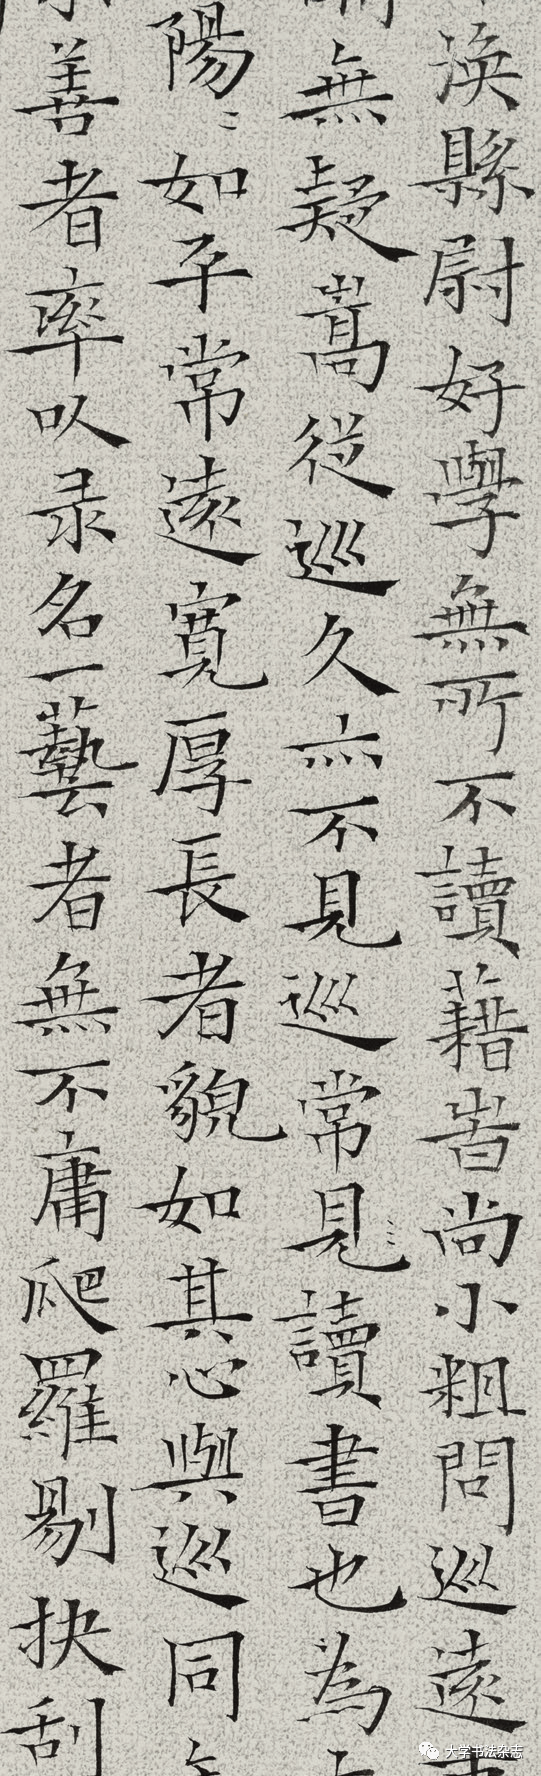 渙縣尉好學無所不讀藉峕尚小粗問巡遠
無疑嵩從巡久亦不見巡常見讀書也為
陽〻如平常遠寬厚長者貌如其心與巡同
善者率以录名一藝者無不庸爬羅剔抉刮
大学书法杂志